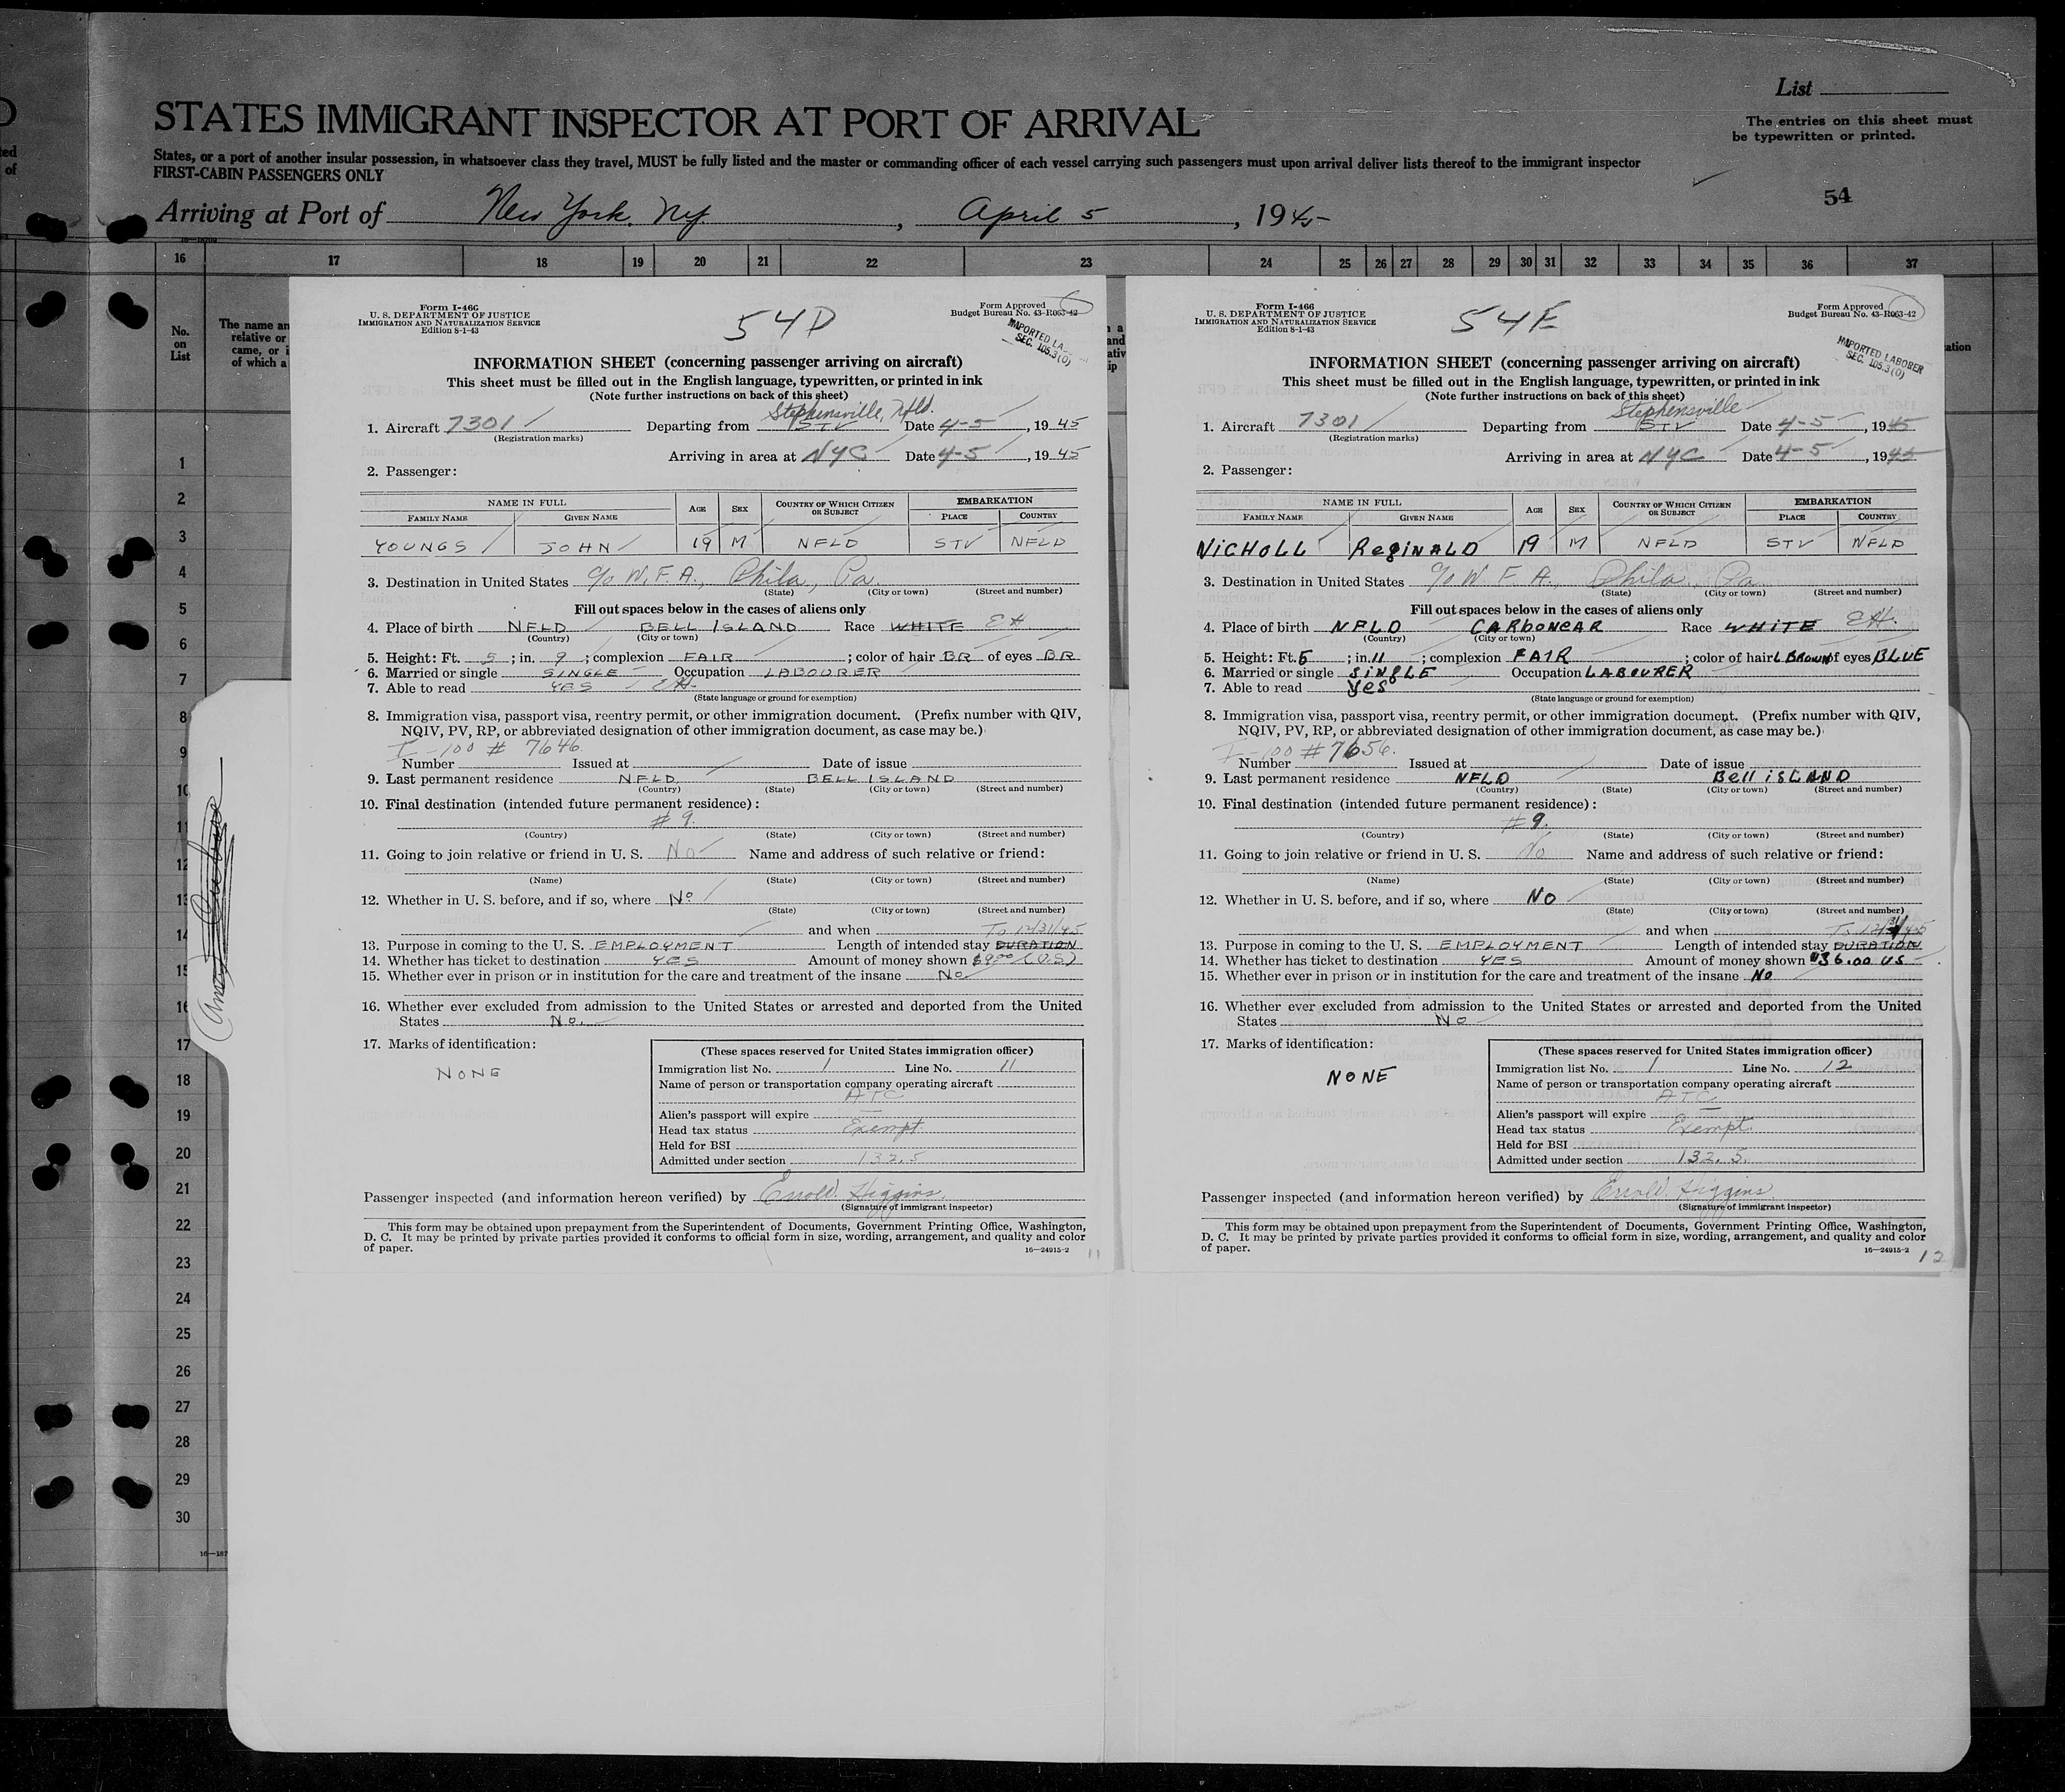 List
STATES IMMIGRANT INSPECTOR AT PORT OF ARRIVAL
The entries on this sheet must
be typewritten or printed.
States, or a port of another insular possession, in whatsoever class they travel, MUST be fully listed and the master or commanding officer of each vessel carrying such passengers must upon arrival deliver lists thereof to the immigrant inspector
FIRST-CABIN PASSENGERS ONLY
54
Arriving at Port of New York, NY, April 5, 1945
16 17 18 19 20 21 22 23 24 25 26 27 28 29 30 31 32 33 34 35 36 37
No.
on
List
The name an
relative or
came, or i
of which a
1
2
3
4
5
6
7
8
9
10
11
12
13
14
15
16
17
18
19
20
21
22
23
24
25
26
27
28
29
30
16—187
Form I-466
U. S. DEPARTMENT OF JUSTICE
IMMIGRATION AND NATURALIZATION SERVICE
Edition 8-1-43
54D
Form Approved
Budget Bureau No. 43-R063-42
IMPORTED LA
SEC. 105.3(0)
INFORMATION SHEET (concerning passenger arriving on aircraft)
This sheet must be filled out in the English language, typewritten, or printed in ink
(Note further instructions on back of this sheet)
Stephensville, Nfld.
1. Aircraft 7301 Departing from STV Date 4-5, 1945
(Registration marks)
Arriving in area at NYC Date 4-5, 1945
2. Passenger:
NAME IN FULL AGE SEX COUNTRY OF WHICH CITIZEN OR SUBJECT EMBARKATION
FAMILY NAME GIVEN NAME PLACE COUNTRY
YOUNGS JOHN 19 M NFLD STV NFLD
3. Destination in United States c/o W.F.A., Phila, Pa.
(State) (City or town) (Street and number)
Fill out spaces below in the cases of aliens only
4. Place of birth NFLD BELL ISLAND Race WHITE EH.
(Country) (City or town)
5. Height: Ft. 5; in. 9; complexion FAIR; color of hair BR of eyes BR
6. Married or single SINGLE Occupation LABOURER
7. Able to read YES EH.
(State language or ground for exemption)
8. Immigration visa, passport visa, reentry permit, or other immigration document. (Prefix number with QIV,
NQIV, PV, RP, or abbreviated designation of other immigration document, as case may be.)
I-100 # 7646
Number Issued at Date of issue
9. Last permanent residence NFLD BELL ISLAND
(Country) (State) (City or town) (Street and number)
10. Final destination (intended future permanent residence):
# 9.
(Country) (State) (City or town) (Street and number)
11. Going to join relative or friend in U. S. No Name and address of such relative or friend:
(Name) (State) (City or town) (Street and number)
12. Whether in U. S. before, and if so, where No
(State) (City or town) (Street and number)
and when To 12/31/45
13. Purpose in coming to the U. S. EMPLOYMENT Length of intended stay DURATION
14. Whether has ticket to destination YES Amount of money shown $9.00 (U.S)
15. Whether ever in prison or in institution for the care and treatment of the insane No.
16. Whether ever excluded from admission to the United States or arrested and deported from the United
States No.
17. Marks of identification:
NONE
(These spaces reserved for United States immigration officer)
Immigration list No. 1 Line No. 11
Name of person or transportation company operating aircraft
ATC
Alien's passport will expire —
Head tax status Exempt.
Held for BSI
Admitted under section 132.5
Passenger inspected (and information hereon verified) by Errol W. Higgins.
(Signature of immigrant inspector)
This form may be obtained upon prepayment from the Superintendent of Documents, Government Printing Office, Washington,
D. C. It may be printed by private parties provided it conforms to official form in size, wording, arrangement, and quality and color
of paper.
16—24915-2
11
Form I-466
U. S. DEPARTMENT OF JUSTICE
IMMIGRATION AND NATURALIZATION SERVICE
Edition 8-1-43
54E
Form Approved
Budget Bureau No. 43-R063-42
IMPORTED LABORER
SEC. 105.3(0)
INFORMATION SHEET (concerning passenger arriving on aircraft)
This sheet must be filled out in the English language, typewritten, or printed in ink
(Note further instructions on back of this sheet)
Stephensville
1. Aircraft 7301 Departing from STV Date 4-5, 1945
(Registration marks)
Arriving in area at NYC Date 4-5, 1945
2. Passenger:
NAME IN FULL AGE SEX COUNTRY OF WHICH CITIZEN OR SUBJECT EMBARKATION
FAMILY NAME GIVEN NAME PLACE COUNTRY
NICHOLL ReginALD 19 M NFLD STV NFLD
3. Destination in United States c/o W. F. A. Phila, Pa
(State) (City or town) (Street and number)
Fill out spaces below in the cases of aliens only
4. Place of birth NFLD CARboNEAR Race WHITE EH.
(Country) (City or town)
5. Height: Ft. 5; in. 11; complexion FAIR; color of hair L BROWN of eyes BLUE
6. Married or single SINGLE Occupation LABOURER
7. Able to read yes
(State language or ground for exemption)
8. Immigration visa, passport visa, reentry permit, or other immigration document. (Prefix number with QIV,
NQIV, PV, RP, or abbreviated designation of other immigration document, as case may be.)
I-100 # 7656.
Number Issued at Date of issue
9. Last permanent residence NFLD Bell iSLAND
(Country) (State) (City or town) (Street and number)
10. Final destination (intended future permanent residence):
# 9.
(Country) (State) (City or town) (Street and number)
11. Going to join relative or friend in U. S. No Name and address of such relative or friend:
(Name) (State) (City or town) (Street and number)
12. Whether in U. S. before, and if so, where NO
(State) (City or town) (Street and number)
and when To 12/31/45
13. Purpose in coming to the U. S. EMPLOYMENT Length of intended stay DURATION
14. Whether has ticket to destination YES Amount of money shown $36.00 US
15. Whether ever in prison or in institution for the care and treatment of the insane No
16. Whether ever excluded from admission to the United States or arrested and deported from the United
States No
17. Marks of identification:
NONE
(These spaces reserved for United States immigration officer)
Immigration list No. 1 Line No. 12
Name of person or transportation company operating aircraft
ATC
Alien's passport will expire —
Head tax status Exempt.
Held for BSI
Admitted under section 132.5.
Passenger inspected (and information hereon verified) by Errol W. Higgins.
(Signature of immigrant inspector)
This form may be obtained upon prepayment from the Superintendent of Documents, Government Printing Office, Washington,
D. C. It may be printed by private parties provided it conforms to official form in size, wording, arrangement, and quality and color
of paper.
16—24915-2
12